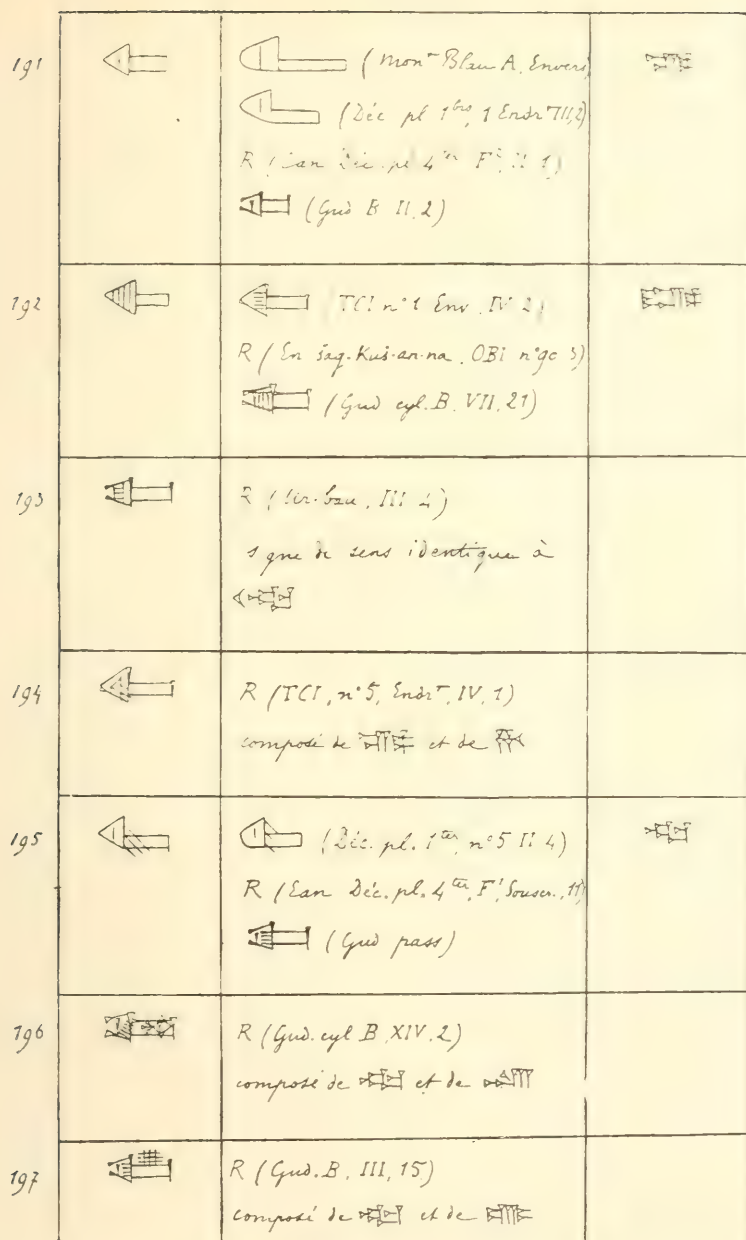 191
(Mont Blau A, Envers)
(Déc pl 1bis, 1 Endrt III, 2)
R (Ean Déc. pl 4ter F1, II 1)
(Gud B II, 2)
192
(TCI n°1 Env. IV 2)
R (En šag-Kuš-an-na, OBi n°90 3)
(Gud cyl. B. VII, 21)
193
R (Ur-bau, III 4)
signe de sens identique à
194
R (TCI, n°5, Endrt, IV, 1)
composé de et de
195
(Déc. pl. 1ter, n°5 II 4)
R (Ean Déc. pl. 4ter, F1, Souscr., 11)
(Gud pass)
196
R (Gud. cyl B XIV, 2)
composé de et de
197
R (Gud. B, III, 15)
composé de et de